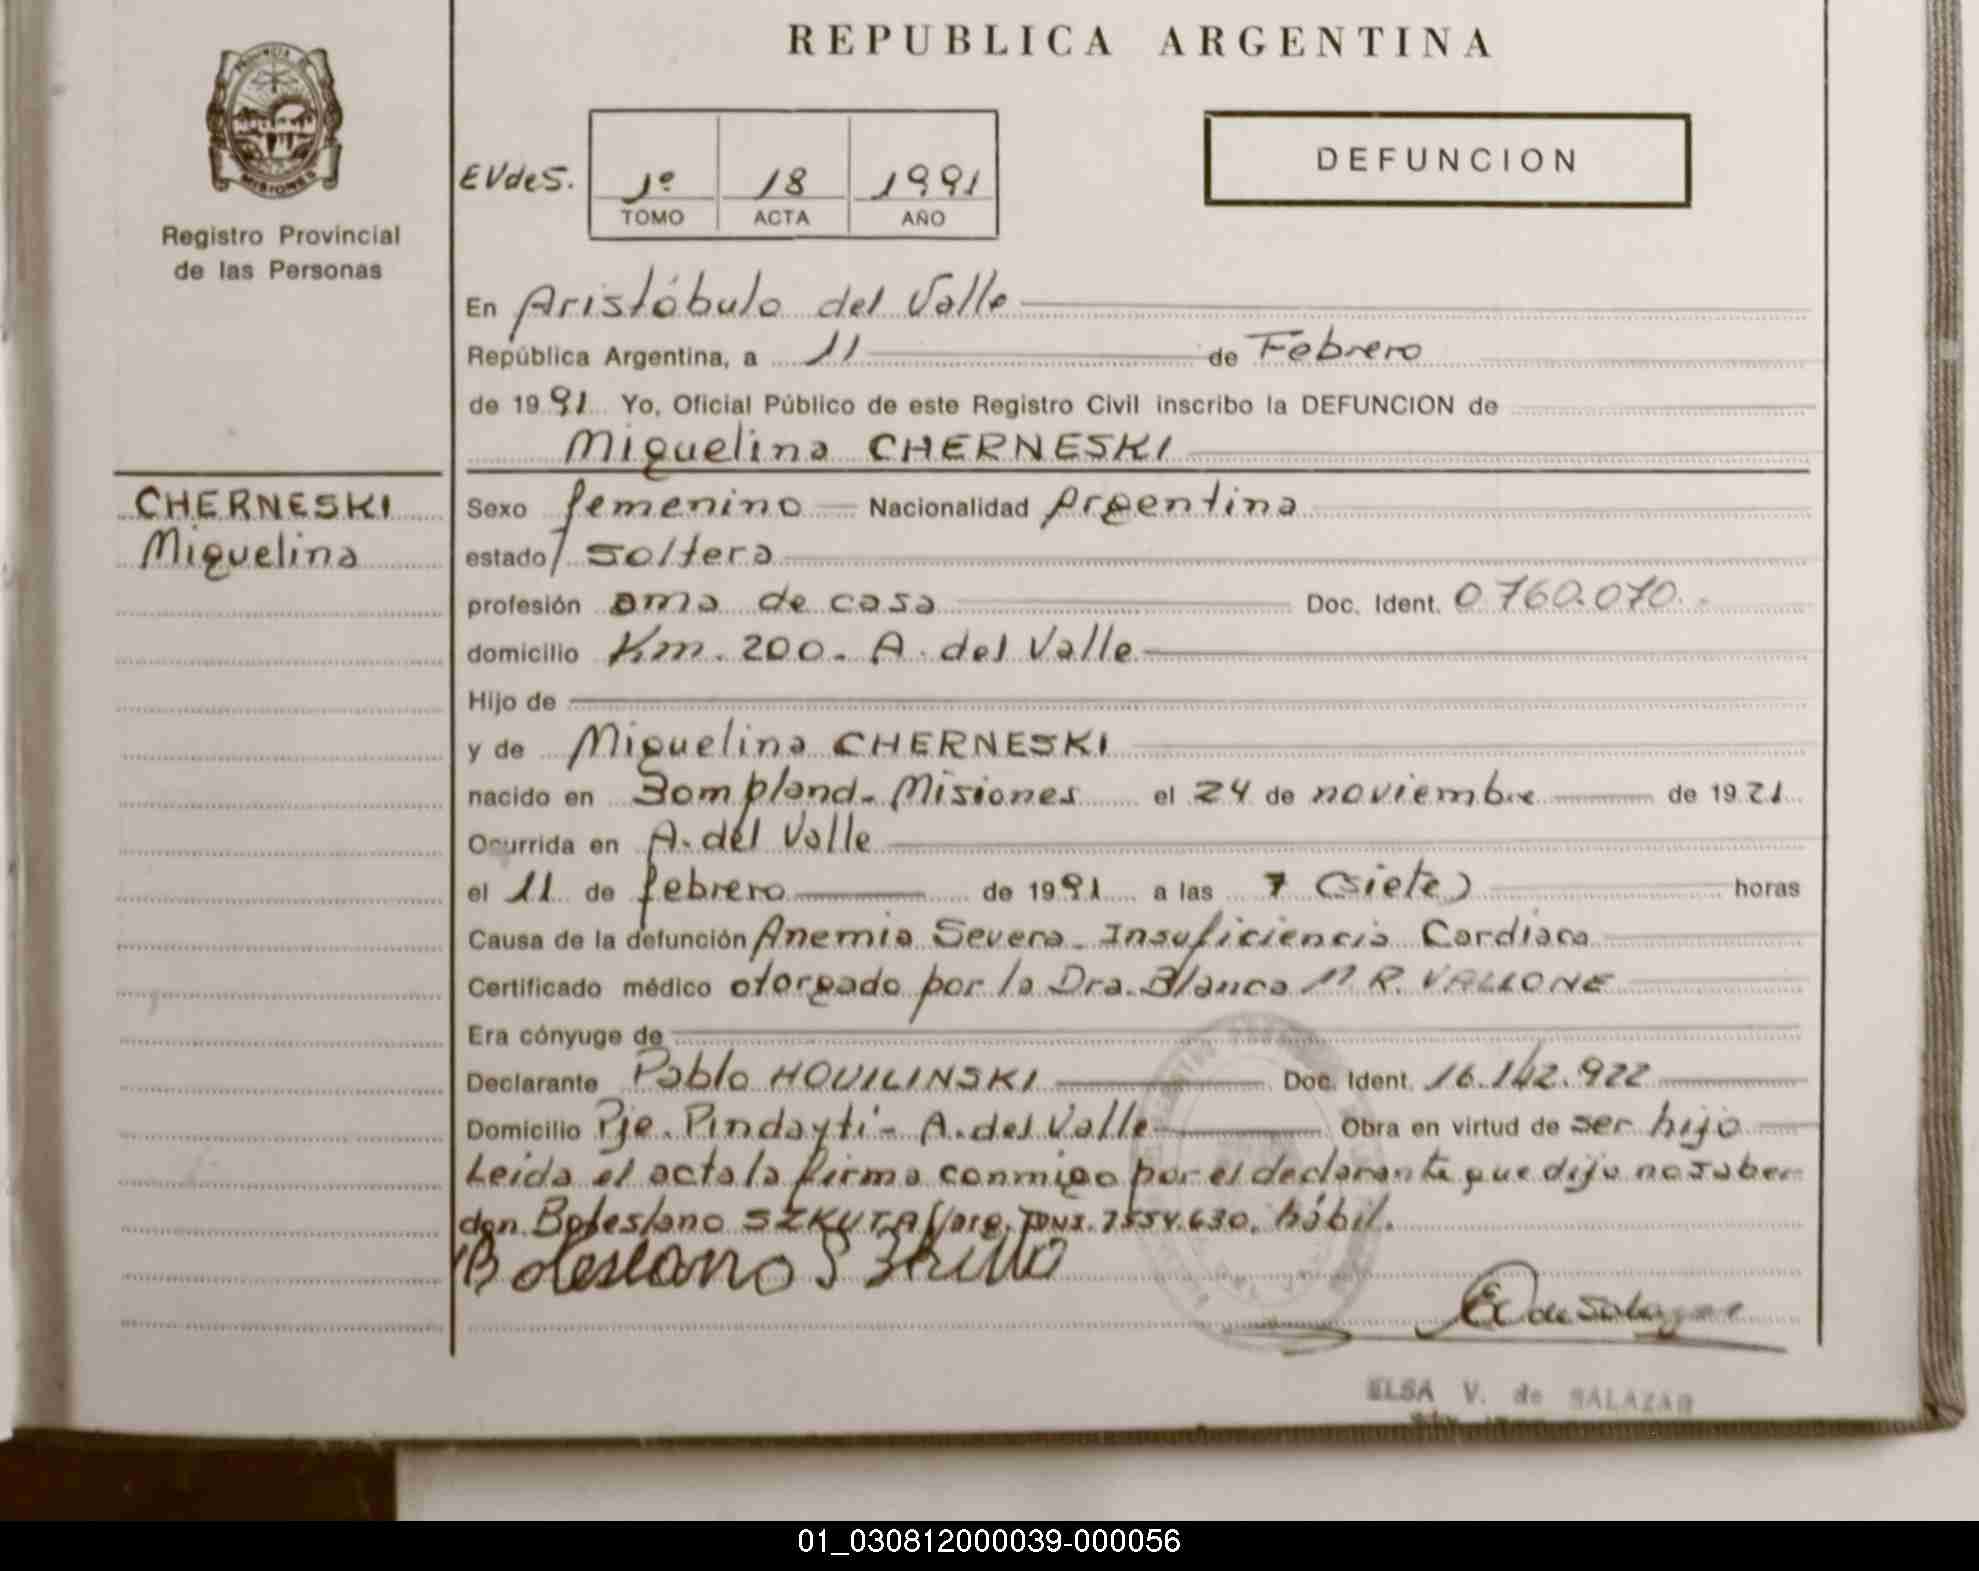 REPUBLICA ARGENTINA
MISIONES
Registro Provincial
de las Personas
EVdeS.
1º 18 1991
TOMO ACTA AÑO
DEFUNCION
En Aristóbulo del Valle
República Argentina, a 11 de Febrero
de 1991 Yo, Oficial Público de este Registro Civil inscribo la DEFUNCION de
Miguelina CHERNESKI
CHERNESKI
Miguelina
Sexo femenino Nacionalidad Argentina
estado soltera
profesión ama de casa Doc. Ident. 0.760.070.
domicilio Km. 200. A. del Valle
Hijo de
y de Miguelina CHERNESKI
nacido en Bompland. Misiones el 24 de noviembre de 1921
Ocurrida en A. del Valle
el 11 de febrero de 1991 a las 7 (siete) horas
Causa de la defunción Anemia Severa. Insuficiencia Cardiaca
Certificado médico otorgado por la Dra. Blanca M R. VALLONE
Era cónyuge de
Declarante Pablo HOUILINSKI Doc. Ident. 16.142.922
Domicilio Pje. Pindaytí - A. del Valle Obra en virtud de ser hijo
Leida el acta la firma conmigo por el declarante que dijo no saber
don Boleslano SZKUTA 7.554.630. hábil.
Boleslano
E V de Salazar
ELSA V. de SALAZAR
01_030812000039-000056